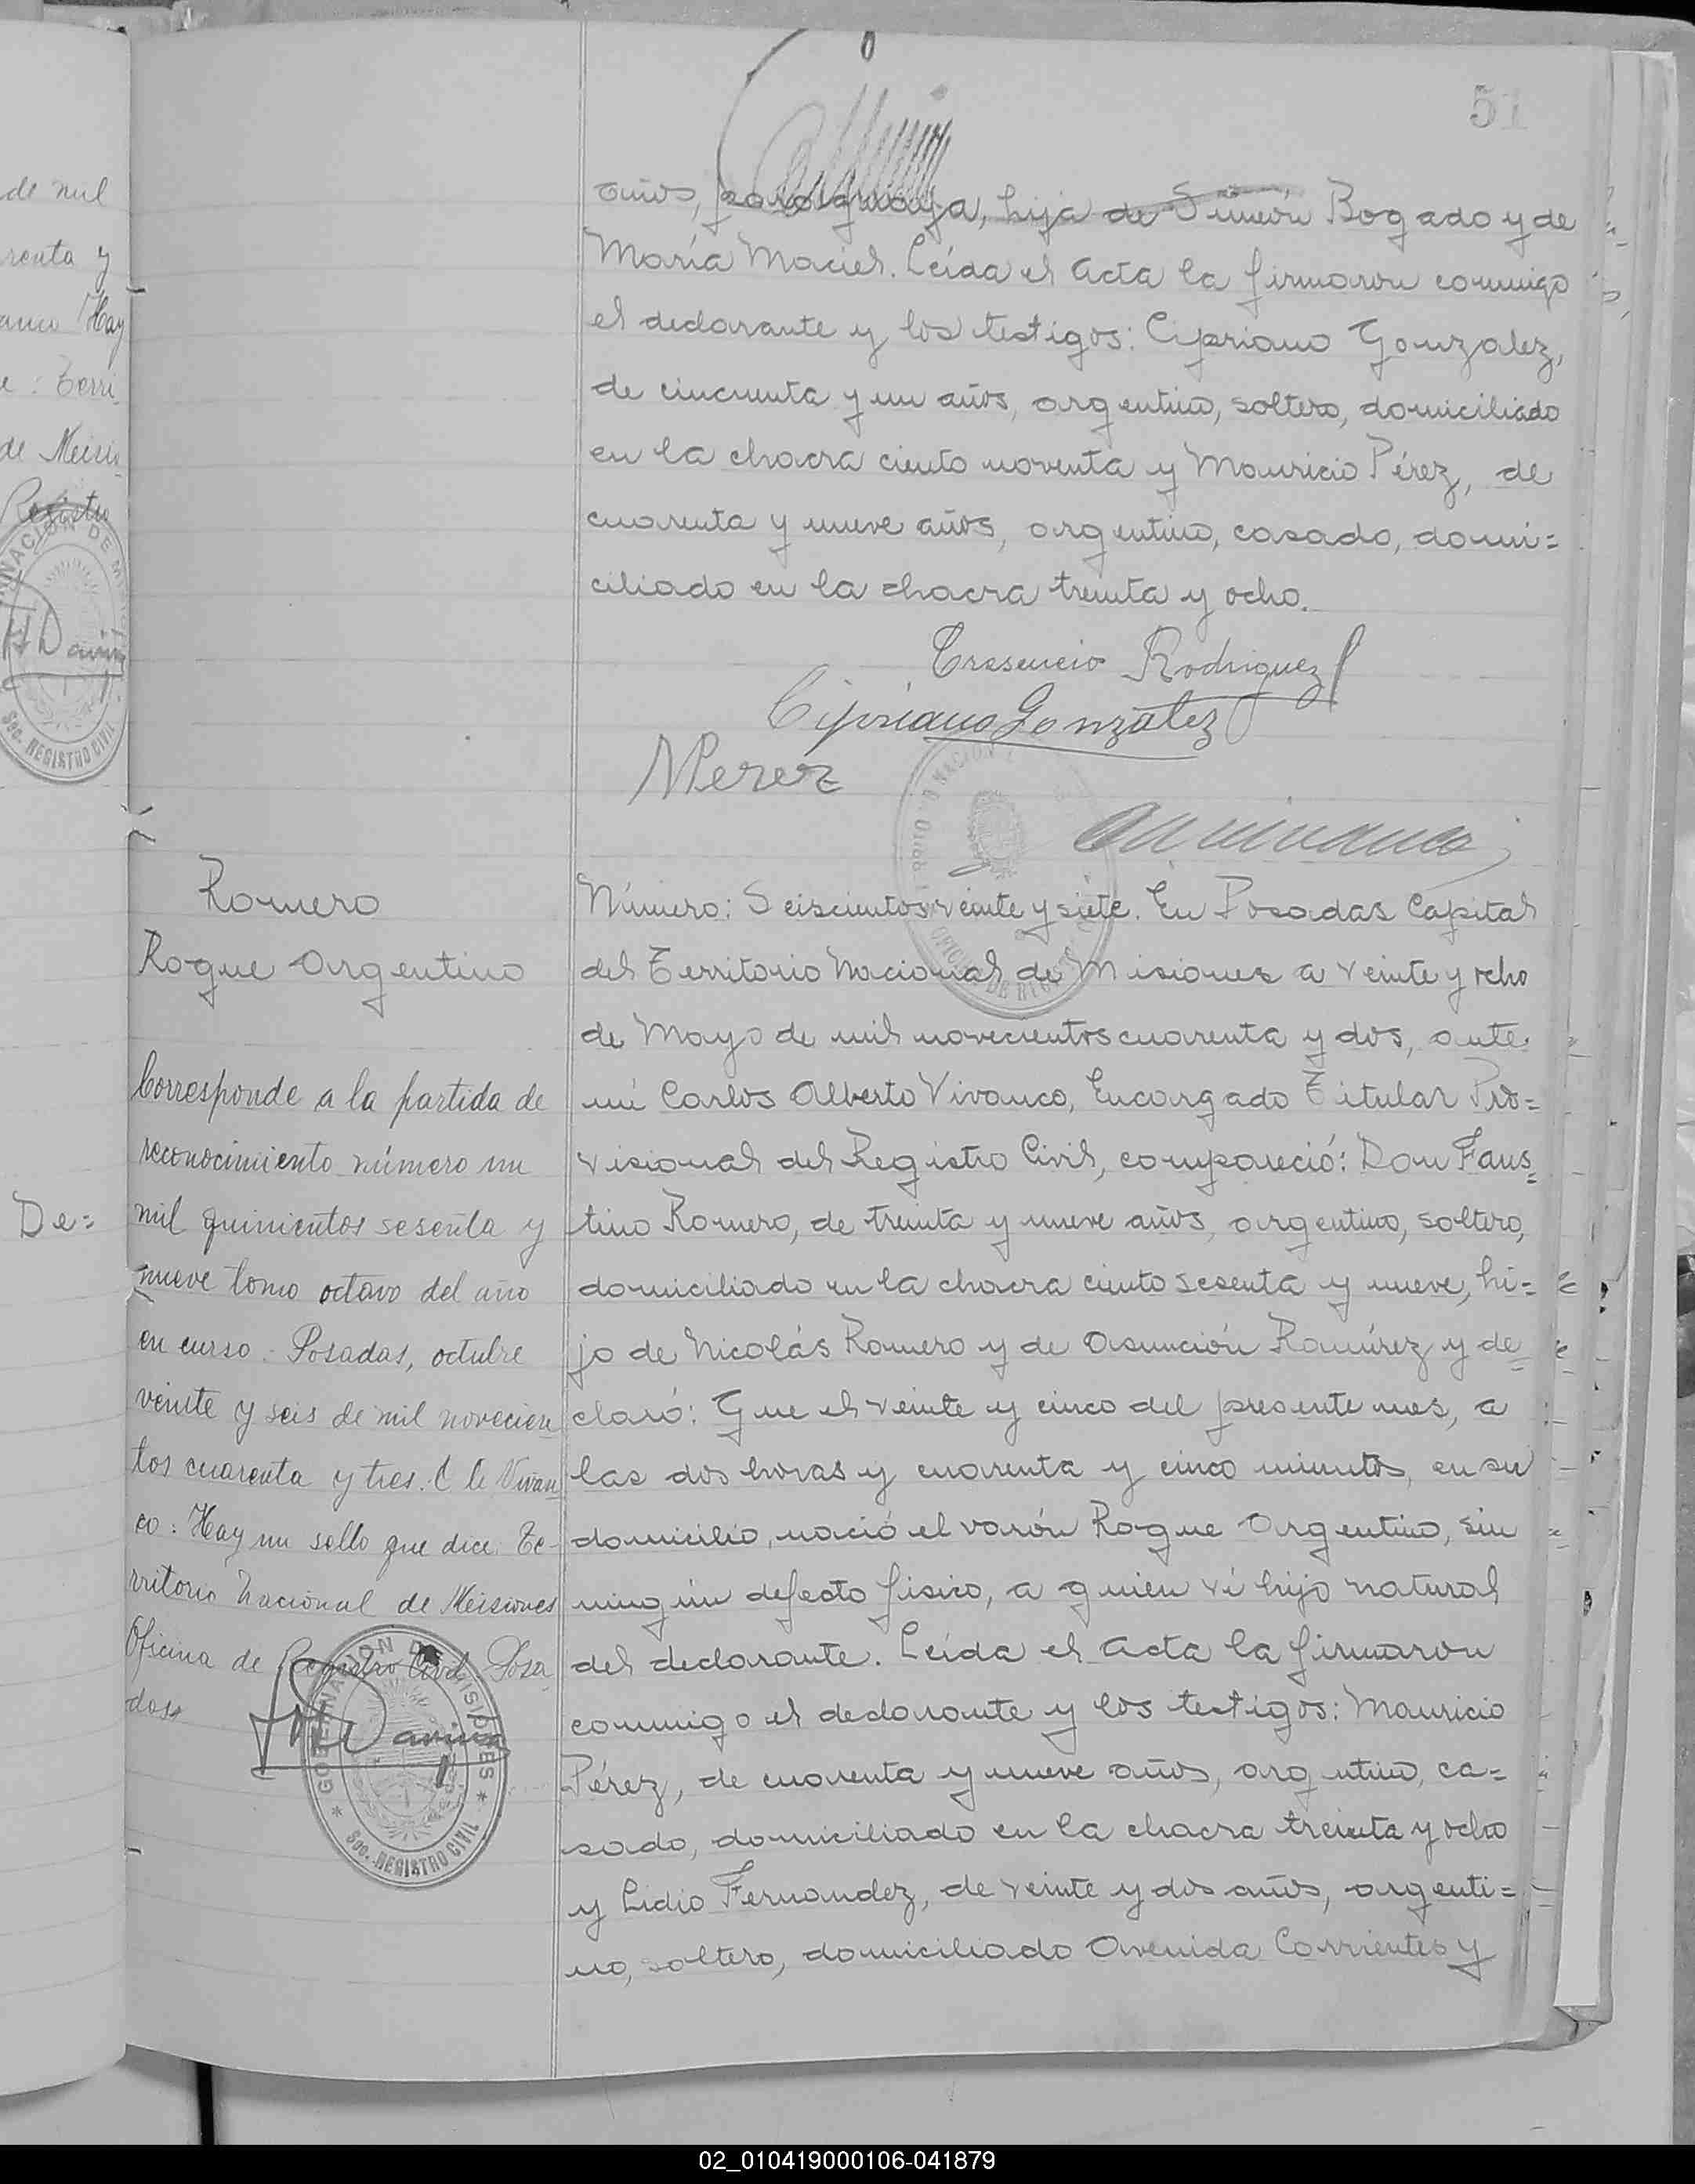 51
años, paraguaya, hija de Simeón Bogado y de
María Maciel. Leída el acta la firmaron conmigo
el declarante y los testigos: Cipriano Gonzalez,
de cincuenta y un años, argentino, soltero, domiciliado
en la chacra ciento noventa y Mauricio Pérez, de
cuarenta y nueve años, argentino, casado, domi=
ciliado en la chacra treinta y ocho.
Cresencio Rodriguez
Cipriano Gonzalez
MPerez
de mil
renta y
Hay
Terri
de Misio
Registro
De=
Romero
Roque Argentino
Corresponde a la partida de
reconocimiento número un
mil quinientos sesenta y
nueve tomo octavo del año
en curso. Posadas, octubre
veinte y seis de mil novecien
tos cuarenta y tres. C Vivan
co: Hay un sello que dice: Te-
rritorio Nacional de Misiones
Oficina de Registro Civil Posa
das
GOBERNACION DE MISIONES
Sec. REGISTRO CIVIL
Número: Seiscientos veinte y siete. En Posadas Capital
del Territorio Nacional de Misiones a veinte y ocho
de Mayo de mil novecientos cuarenta y dos, ante
mi Carlos Alberto Vivanco, Encargado Titular Pro=
visional del Registro Civil, compareció: Don Faus=
tino Romero, de treinta y nueve años, argentino, soltero,
domiciliado en la chacra ciento sesenta y nueve, hi=
jo de Nicolás Romero y de Asunción Ramírez y de=
claró: Que el veinte y cinco del presente mes, a
las dos horas y cuarenta y cinco minutos, en su
domicilio, nació el varón Roque Argentino, sin
ningún defecto físico, a quien ví hijo natural
del declarante. Leída el acta la firmaron
conmigo el declarante y los testigos: Mauricio
Pérez, de cuarenta y nueve años, argentino, ca=
sado, domiciliado en la chacra treinta y ocho
y Lidio Fernandez, de veinte y dos años, argenti=
no, soltero, domiciliado Avenida Corrientes y
02_010419000106-041879